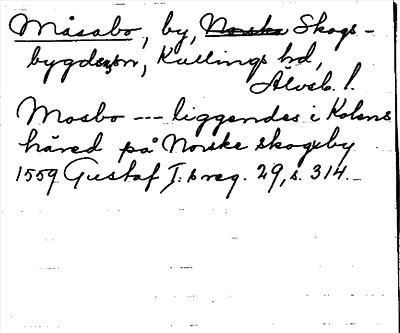 Måsabo, by, Norska Skogs-
bygdssn, Kullings hd,
Älvsb. l.
Mosbo --- liggendes i Kolens
häred på Norske skogsby
1559 Gustaf I:s reg. 29, s. 314.